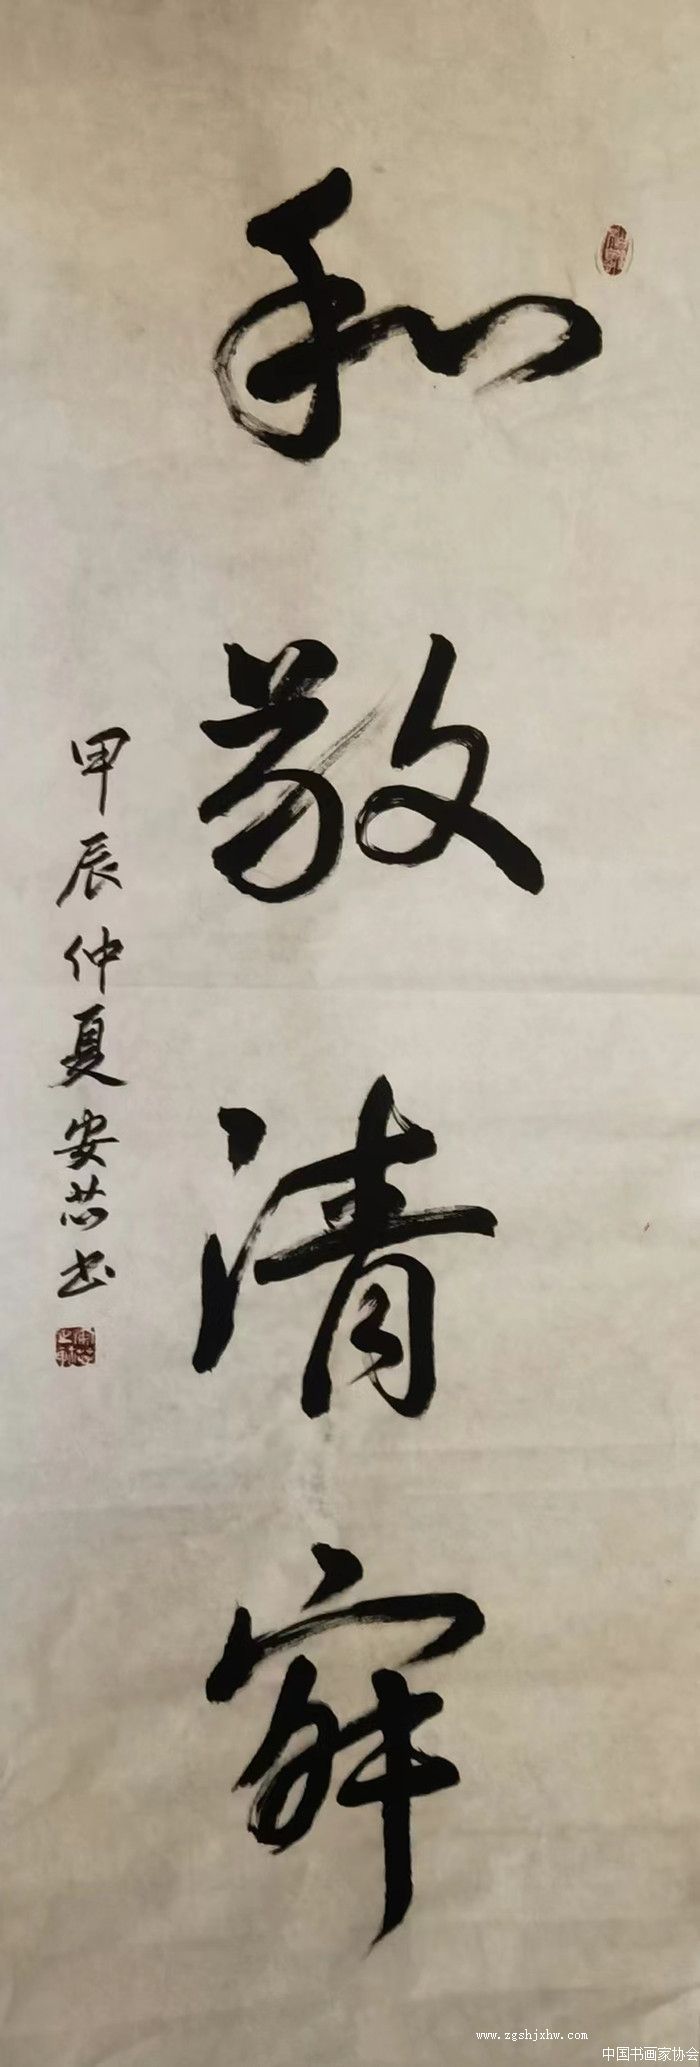 和敬清寂
甲辰仲夏安芯书
www.zgshjxhw.com
中国书画家协会